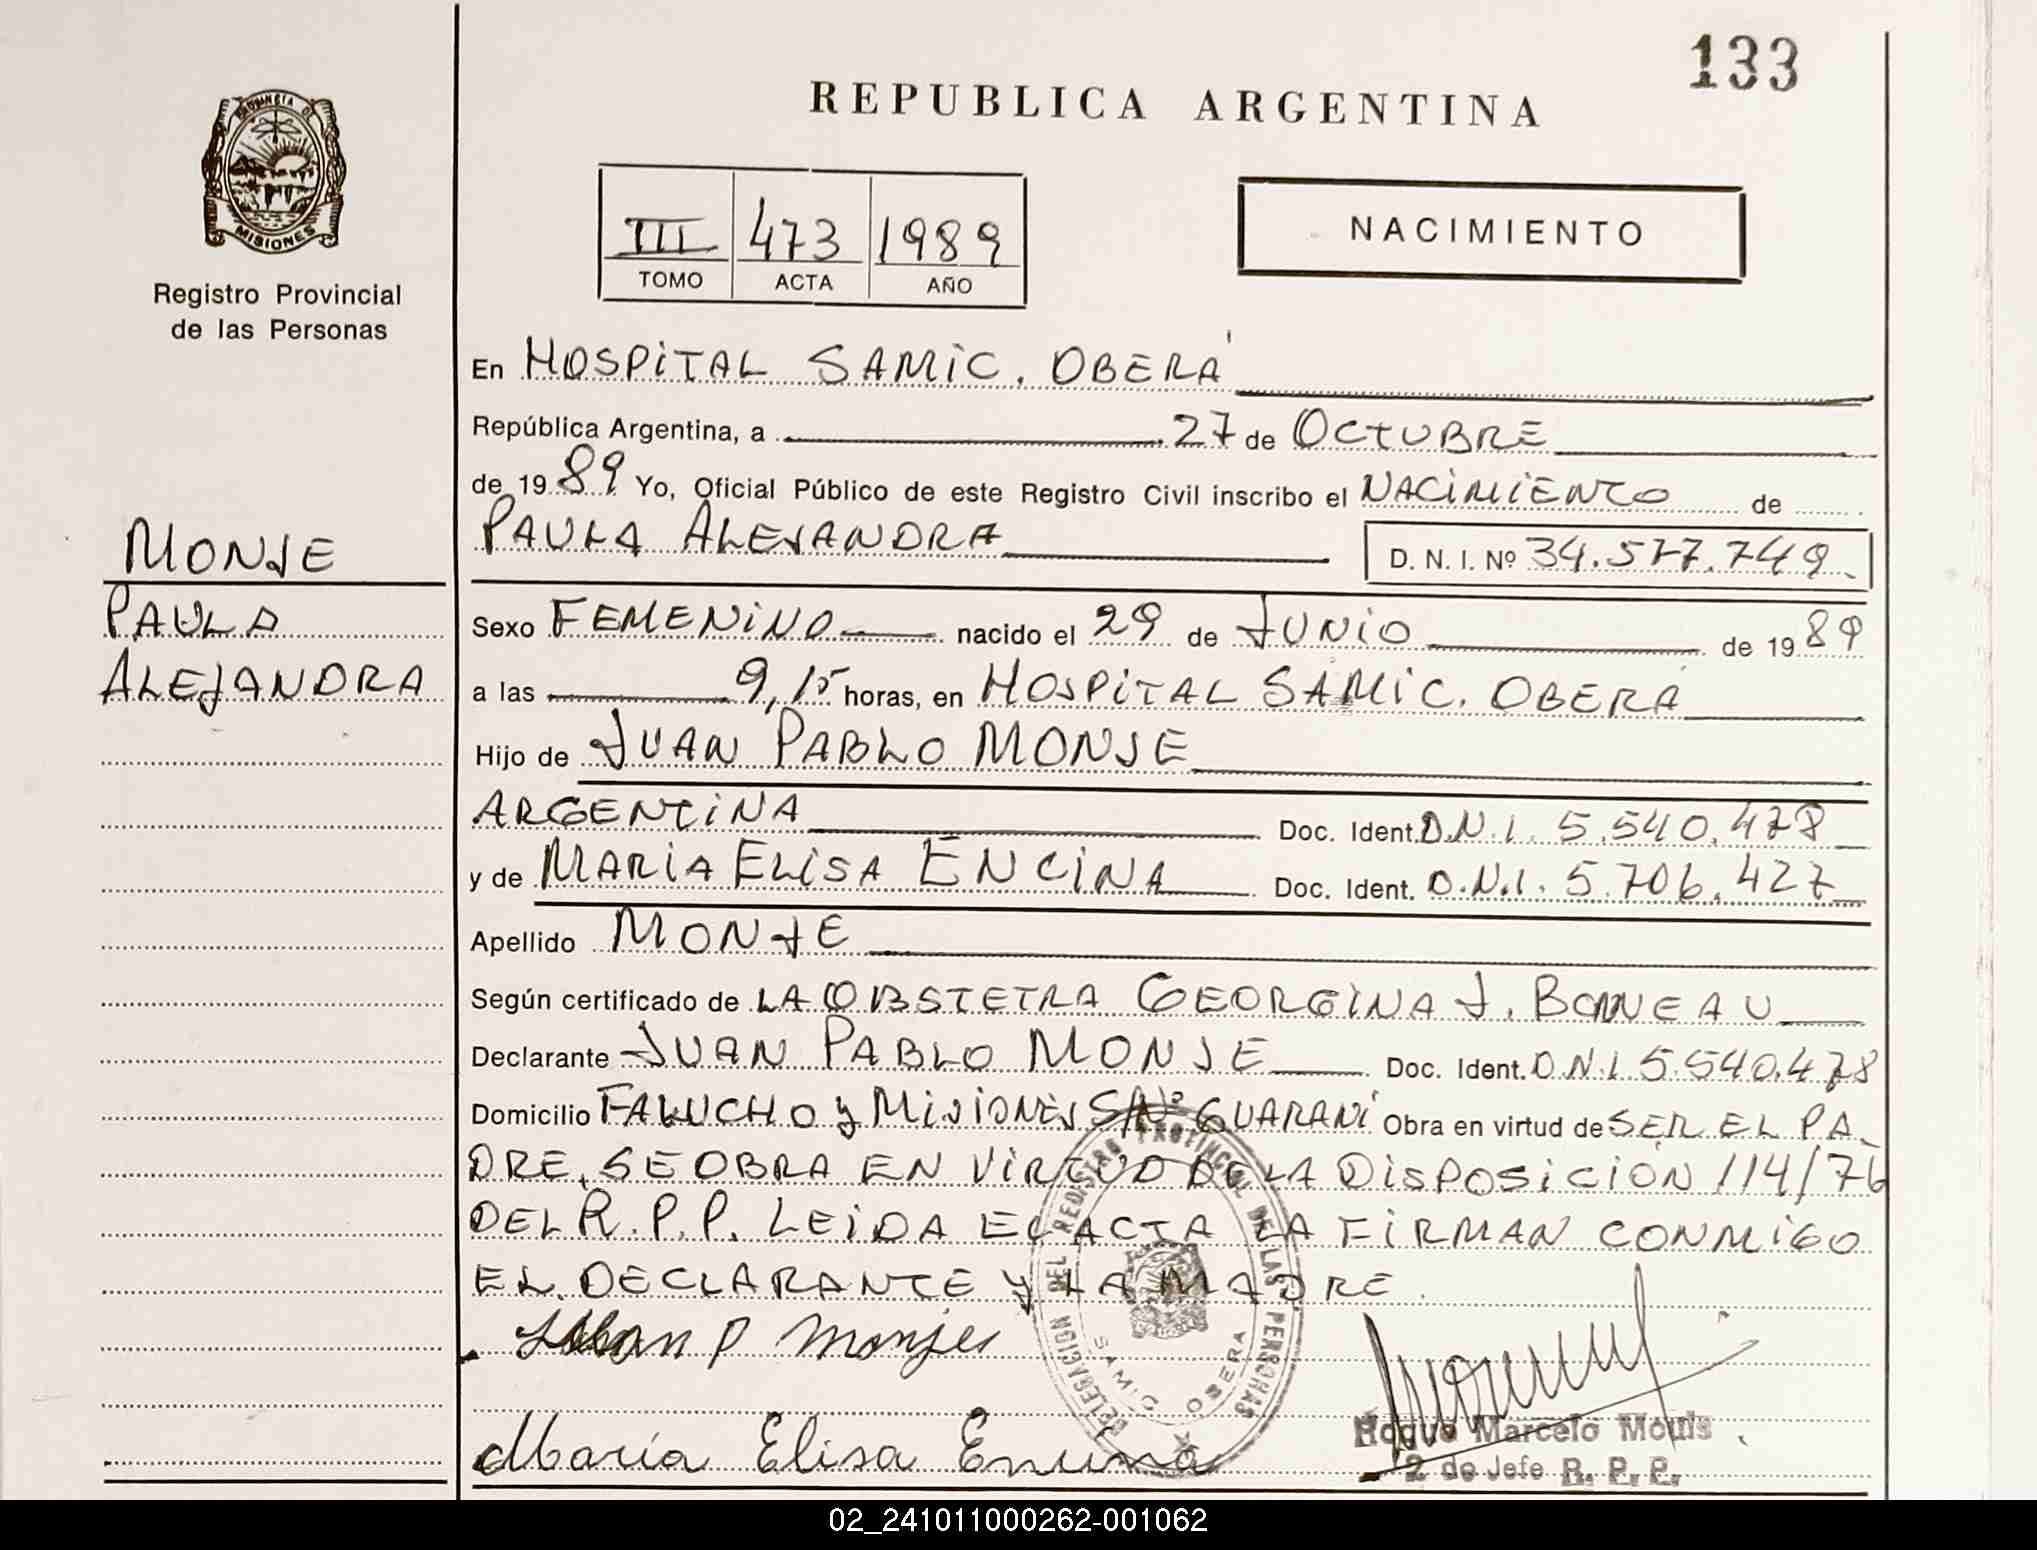 133
REPUBLICA ARGENTINA
PROVINCIA DE
MISIONES
Registro Provincial
de las Personas
III 473 1989
TOMO ACTA AÑO
NACIMIENTO
En HOSPITAL SAMIC. OBERÁ
República Argentina, a 27 de OCTUBRE
de 1989 Yo, Oficial Público de este Registro Civil inscribo el NACIMIENTO de
MONJE
PAULA
ALEJANDRA
PAULA ALEJANDRA D. N. I. Nº 34.577.749
Sexo FEMENINO nacido el 29 de JUNIO de 1989
a las 9,15 horas, en HOSPITAL SAMIC. OBERA
Hijo de JUAN PABLO MONJE
ARGENTINA Doc. Ident. D.N.I. 5.540.478
y de MARIA ELISA ENCINA Doc. Ident. D.N.I. 5.706.427
Apellido MONJE
Según certificado de LA OBSTETRA GEORGINA J.
Declarante JUAN PABLO MONJE Doc. Ident. D.N.I 5.540.478
Domicilio FALUCHO y MISIONES S/Nº GUARANÍ Obra en virtud de SER EL PA-
DRE, SE OBRA EN VIRTUD DE LA DISPOSICIÓN 114/76
DEL R.P.P. LEIDA EL ACTA LA FIRMAN CONMIGO
EL DECLARANTE y LA MADRE.
Juan P Monje
María Elisa Encina
DELEGACION DEL REGISTRO PROVINCIAL DE LAS PERSONAS
SAMIC OBERA
Roque Marcelo
2 do Jefe R. P. P.
02_241011000262-001062